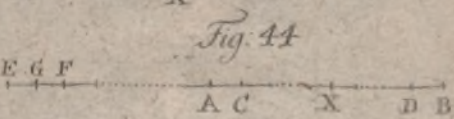 Fig. 44
E G F A C X D B